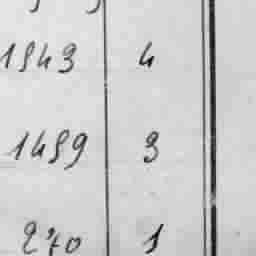 1543 4
1459 3
270 1